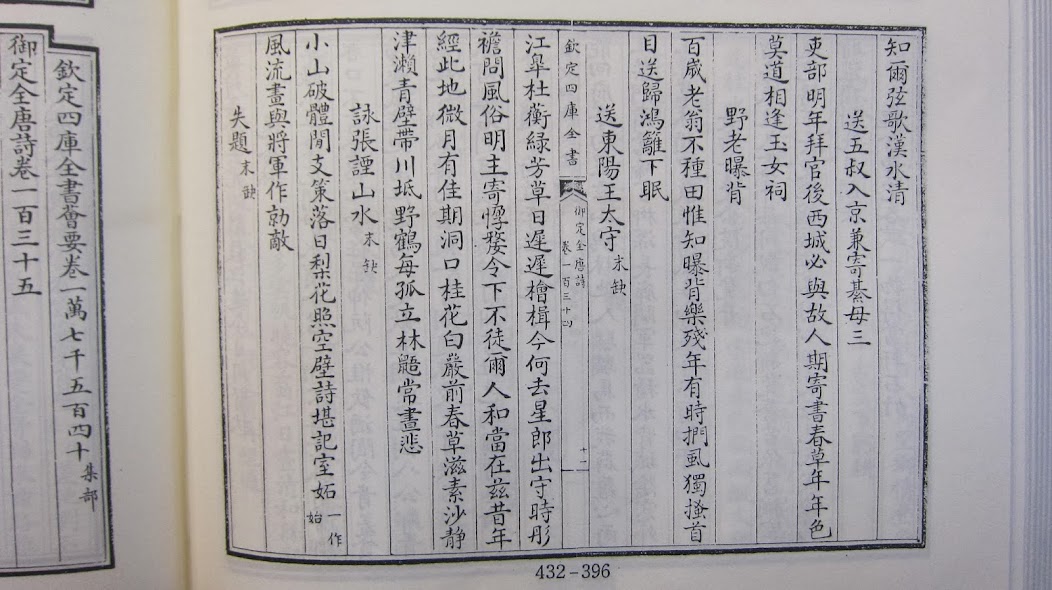 知爾弦歌漢水清
送五叔入京兼寄綦毋三
吏部明年拜官後西城必與故人期寄書春草年年色
莫道相逢玉女祠
野老曝背
百歲老翁不種田惟知曝背樂殘年有時捫虱獨搔首
目送歸鴻籬下眠
送東陽王太守 末缺
欽定四庫全書
御定全唐詩
卷一百三十四
十一
江臯杜蘅緑芳草日遲遲檜楫今何去星郎出守時彤
襜問風俗明主寄惸嫠令下不徒爾人和當在兹昔年
經此地微月有佳期洞口桂花白巖前春草滋素沙静
津瀨青壁帶川坻野鶴每孤立林鼯常晝悲
詠張諲山水 末缺
小山破體閒支策落日梨花照空壁詩堪記室妬 一作始
風流畫與將軍作勍敵
失題 末缺
432-396
欽定四庫全書薈要卷一萬七千五百四十 集部
御定全唐詩卷一百三十五